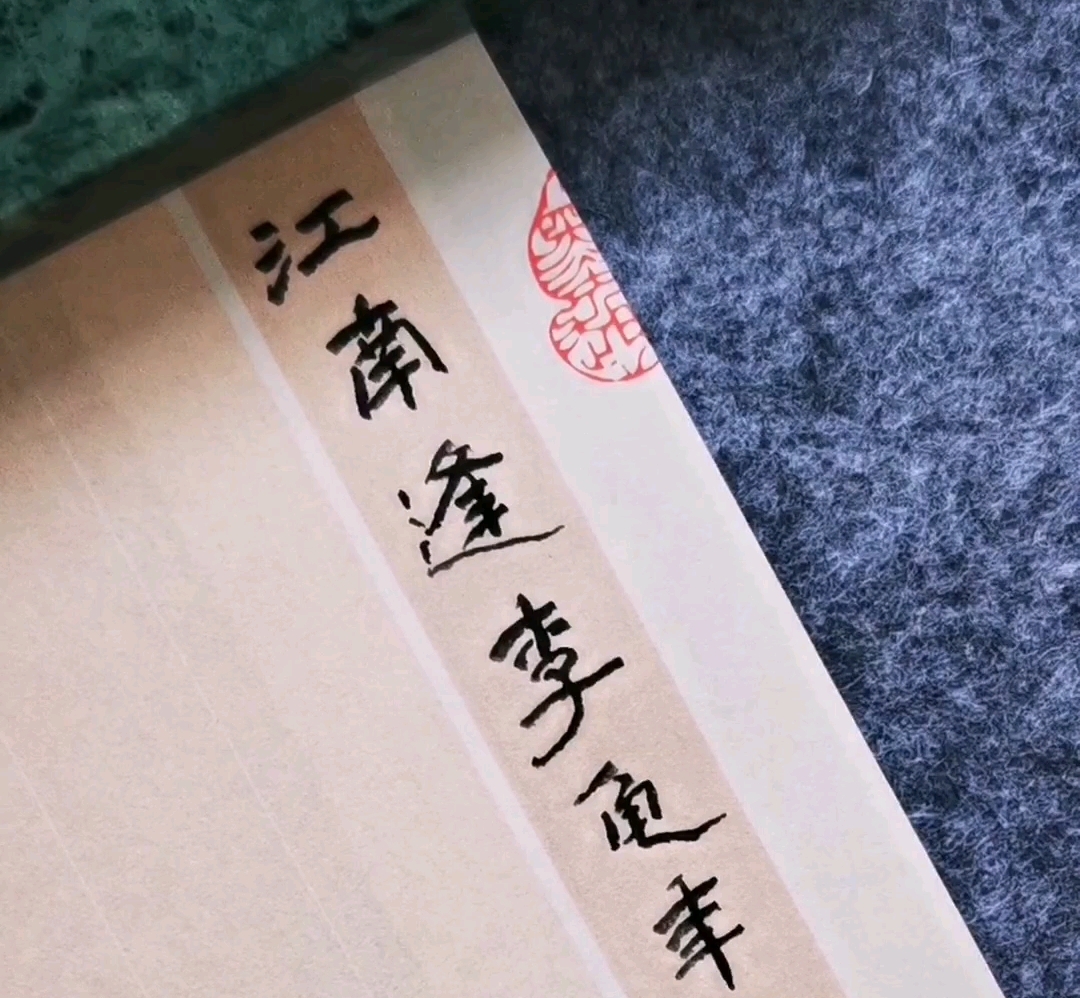 江南逢李龟年